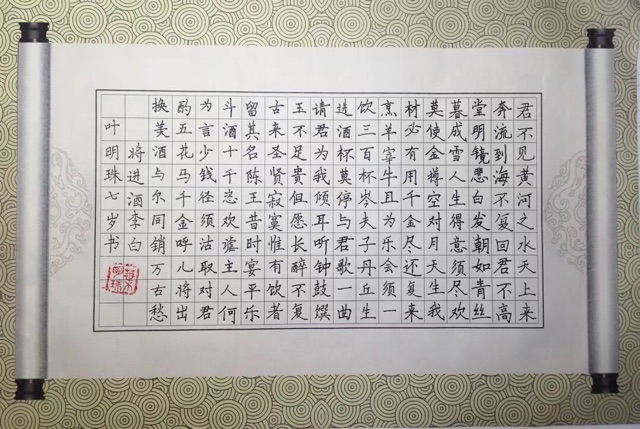 君不见黄河之水天上来
奔流到海不复回君不高
堂明镜悲白发朝如青丝
暮成雪人生得意须尽欢
莫使金樽空对月天生我
材必有用千金尽还复来
烹羊宰牛且为乐会须一
饮三百杯岑夫子丹丘生
进酒杯莫停与君歌一曲
请君为我倾耳听钟鼓馔
玉不足贵但愿长醉不复
古来圣贤寂寞惟有饮者
留其名陈王昔时宴平乐
斗酒十千恣欢谑主人何
为言少钱径须沽取对君
酌五花马千金呼儿将出
换美酒与尔同销万古愁
将进酒李白
叶明珠七岁书